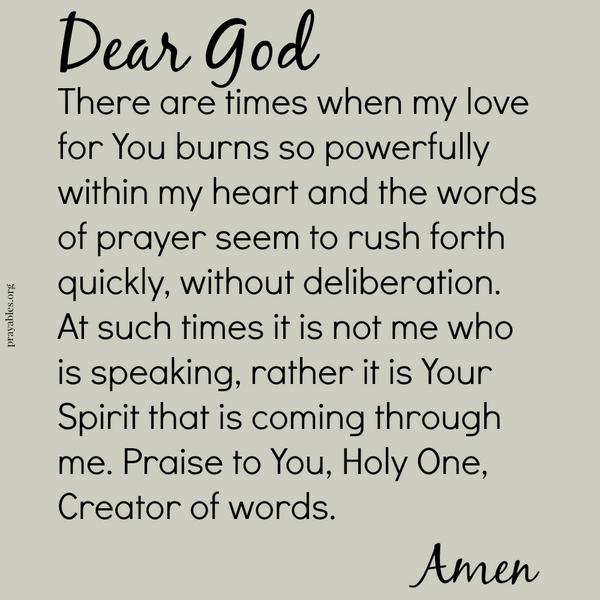 Dear God
There are times when my love
for You burns so powerfully
within my heart and the words
of prayer seem to rush forth
quickly, without deliberation.
At such times it is not me who
is speaking, rather it is Your
Spirit that is coming through
me. Praise to You, Holy One,
Creator of words.
Amen
prayables.org